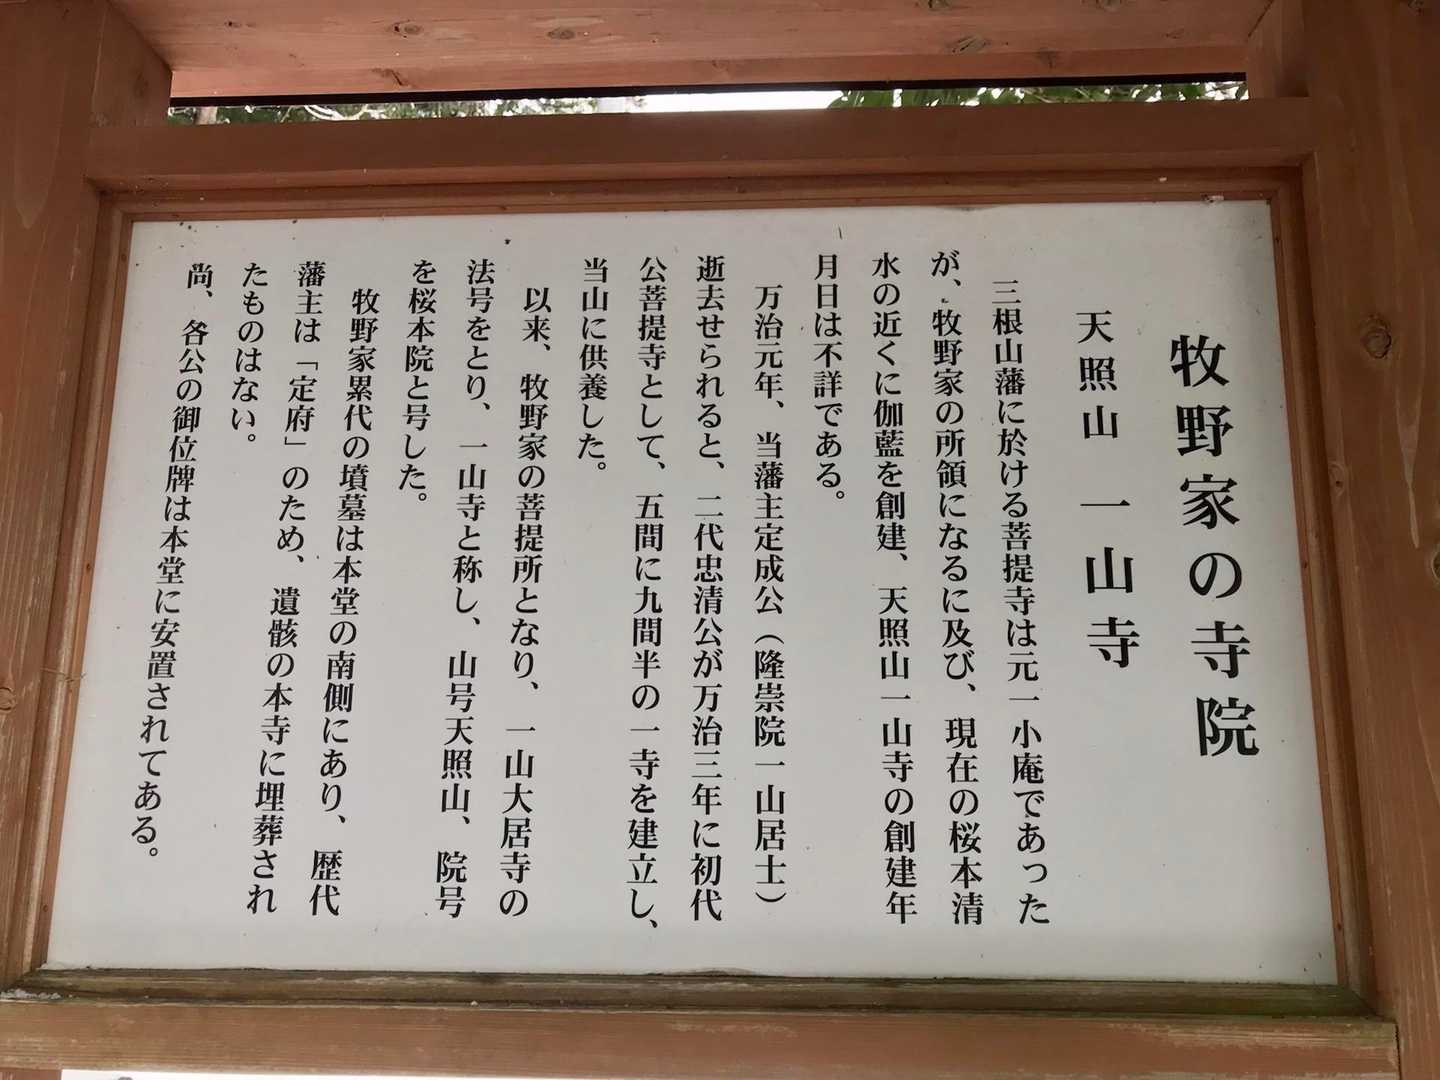 牧野家の寺院
天照山 一山寺
三根山藩に於ける菩提寺は元一小庵であった
が、牧野家の所領になるに及び、現在の桜本清
水の近くに伽藍を創建、天照山一山寺の創建年
月日は不詳である。
万治元年、当藩主定成公（隆崇院一山居士）
逝去せられると、二代忠清公が万治三年に初代
公菩提寺として、五間に九間半の一寺を建立し、
当山に供養した。
以来、牧野家の菩提所となり、一山大居寺の
法号をとり、一山寺と称し、山号天照山、院号
を桜本院と号した。
牧野家累代の墳墓は本堂の南側にあり、歴代
藩主は「定府」のため、遺骸の本寺に埋葬され
たものはない。
尚、各公の御位牌は本堂に安置されてある。